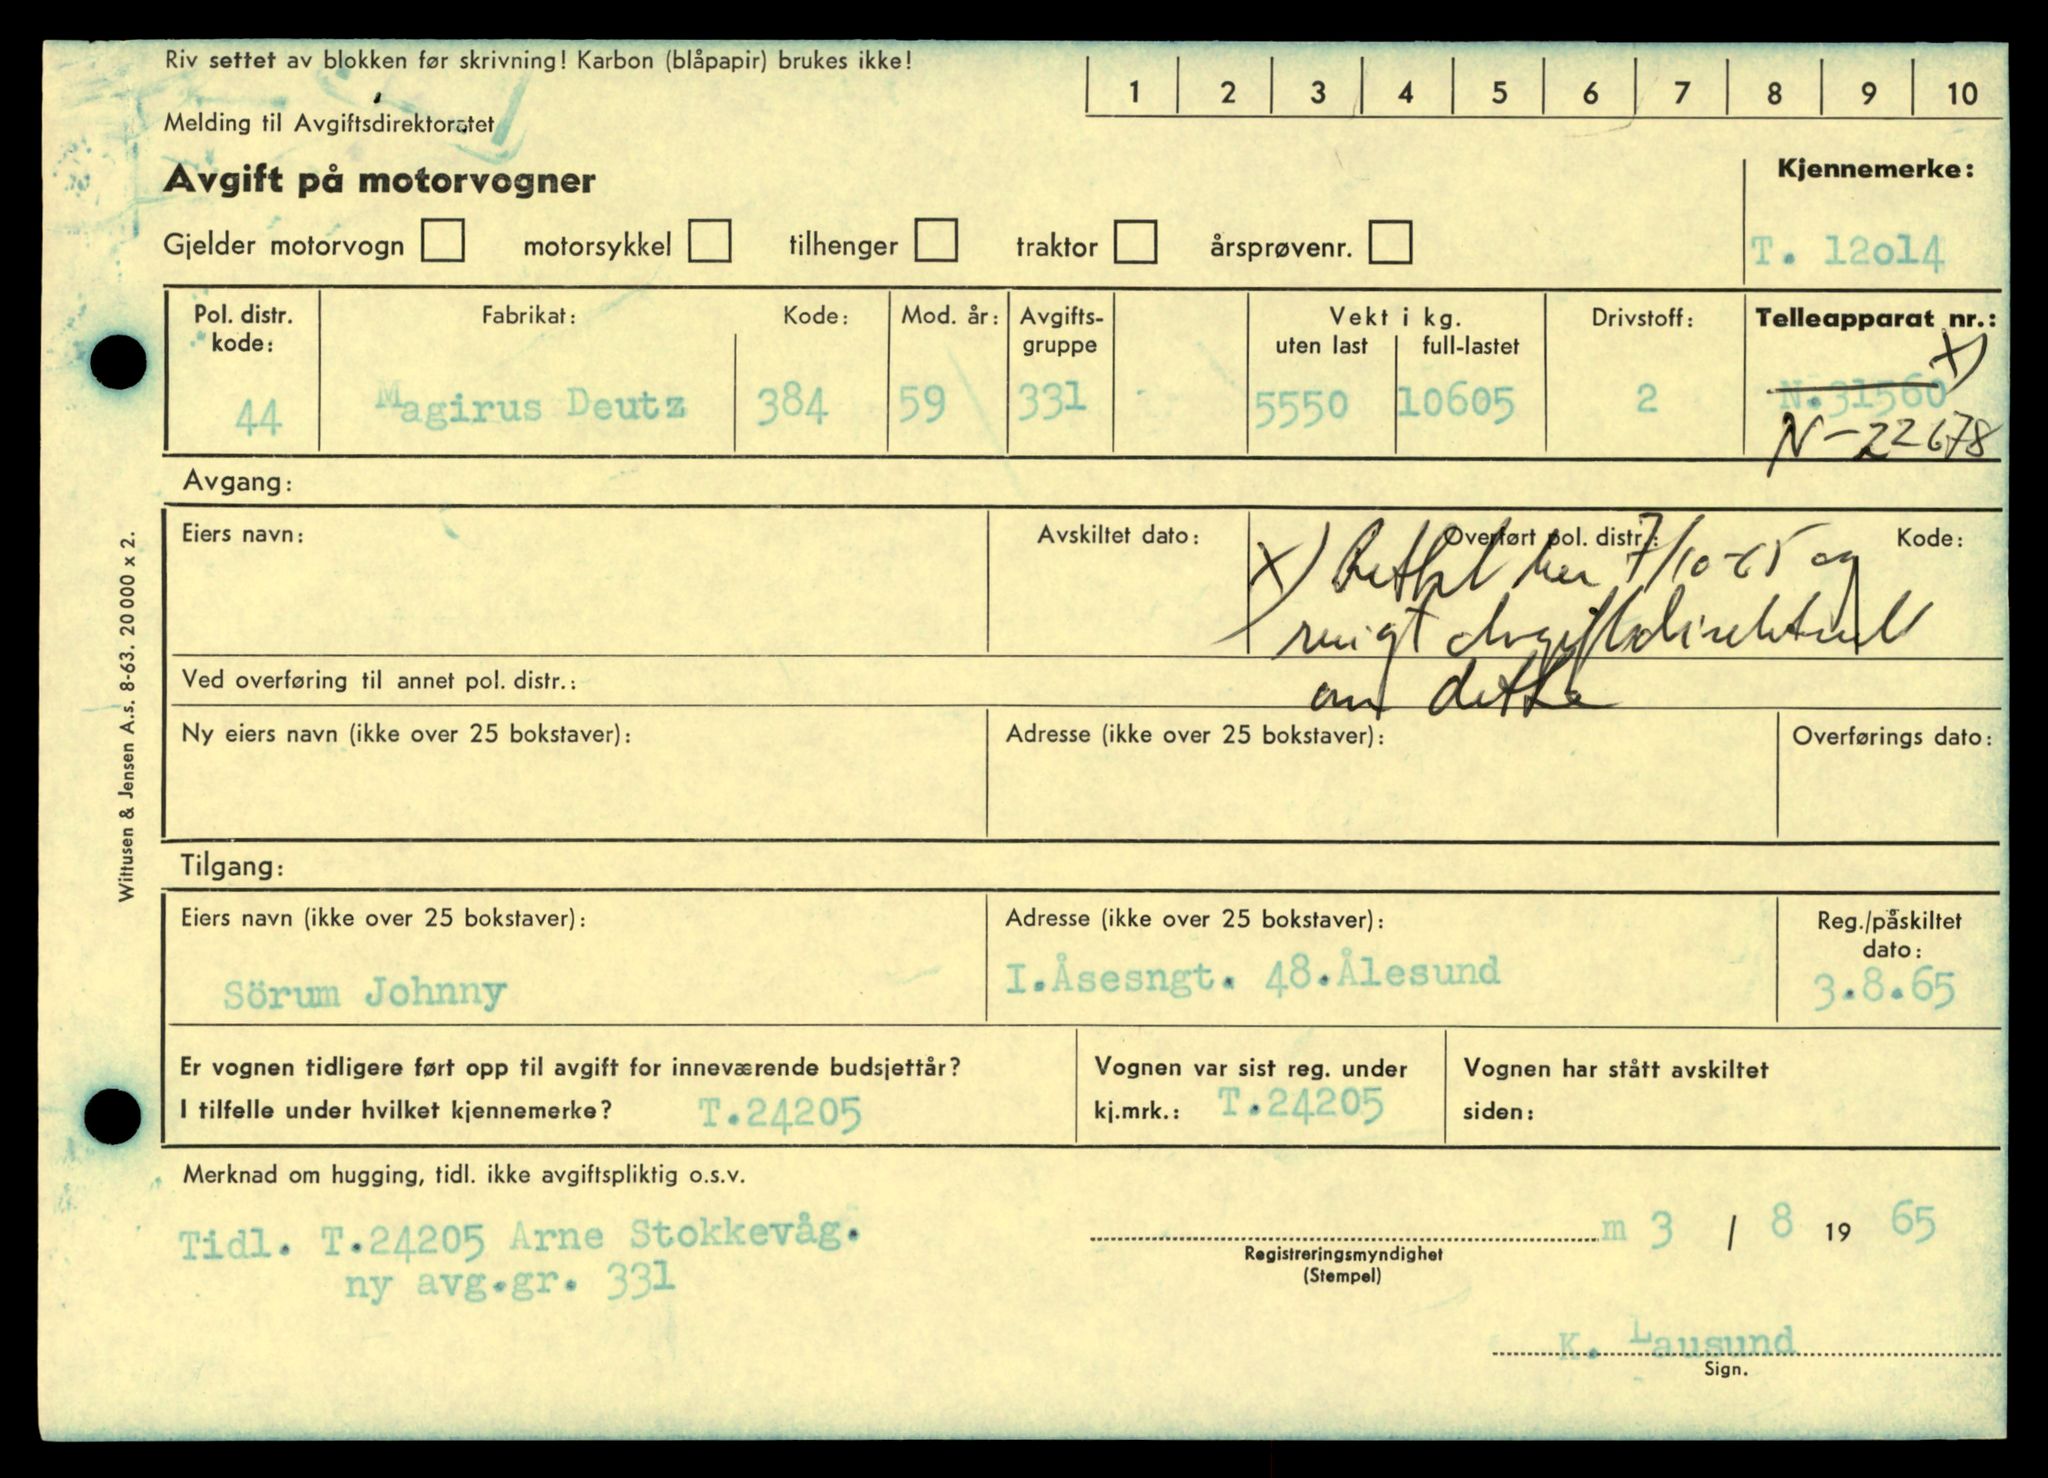 Riv settet av blokken før skrivning! Karbon (blåpapir) brukes ikke!
1 2 3 4 5 6 7 8 9 10
Melding til Avgiftsdirektoratet
Avgift på motorvogner
Kjennemerke:
Gjelder motorvogn motorsykkel tilhenger traktor årsprøvenr.
T. 12o14
Pol. distr. kode: Fabrikat: Kode: Mod. år: Avgifts-gruppe Vekt i kg. uten last full-lastet Drivstoff: Telleapparat nr.:
x)
44 Magirus Deutz 384 59 331 - 5550 10605 2 N.31560
N-22678
Avgang:
Eiers navn: Avskiltet dato: Overført pol. distr.: Kode:
x) her 7/10-65 og
om dette
Ved overføring til annet pol. distr.:
Ny eiers navn (ikke over 25 bokstaver): Adresse (ikke over 25 bokstaver): Overførings dato:
Tilgang:
Eiers navn (ikke over 25 bokstaver): Adresse (ikke over 25 bokstaver): Reg./påskiltet dato:
Sörum Johnny I.Åsesngt. 48.Ålesund 3.8.65
Er vognen tidligere ført opp til avgift for inneværende budsjettår?
I tilfelle under hvilket kjennemerke? T.24205
Vognen var sist reg. under
kj.mrk.: T.24205
Vognen har stått avskiltet
siden:
Merknad om hugging, tidl. ikke avgiftspliktig o.s.v.
Tidl. T.24205 Arne Stokkevåg.
ny avg.gr. 331
m 3 / 8 19 65
Registreringsmyndighet
(Stempel)
K. Lausund
Sign.
Wittusen & Jensen A.s. 8-63. 20 000 x 2.